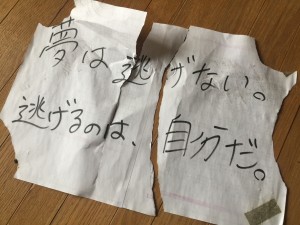 夢は逃げない。
逃げるのは、自分だ。